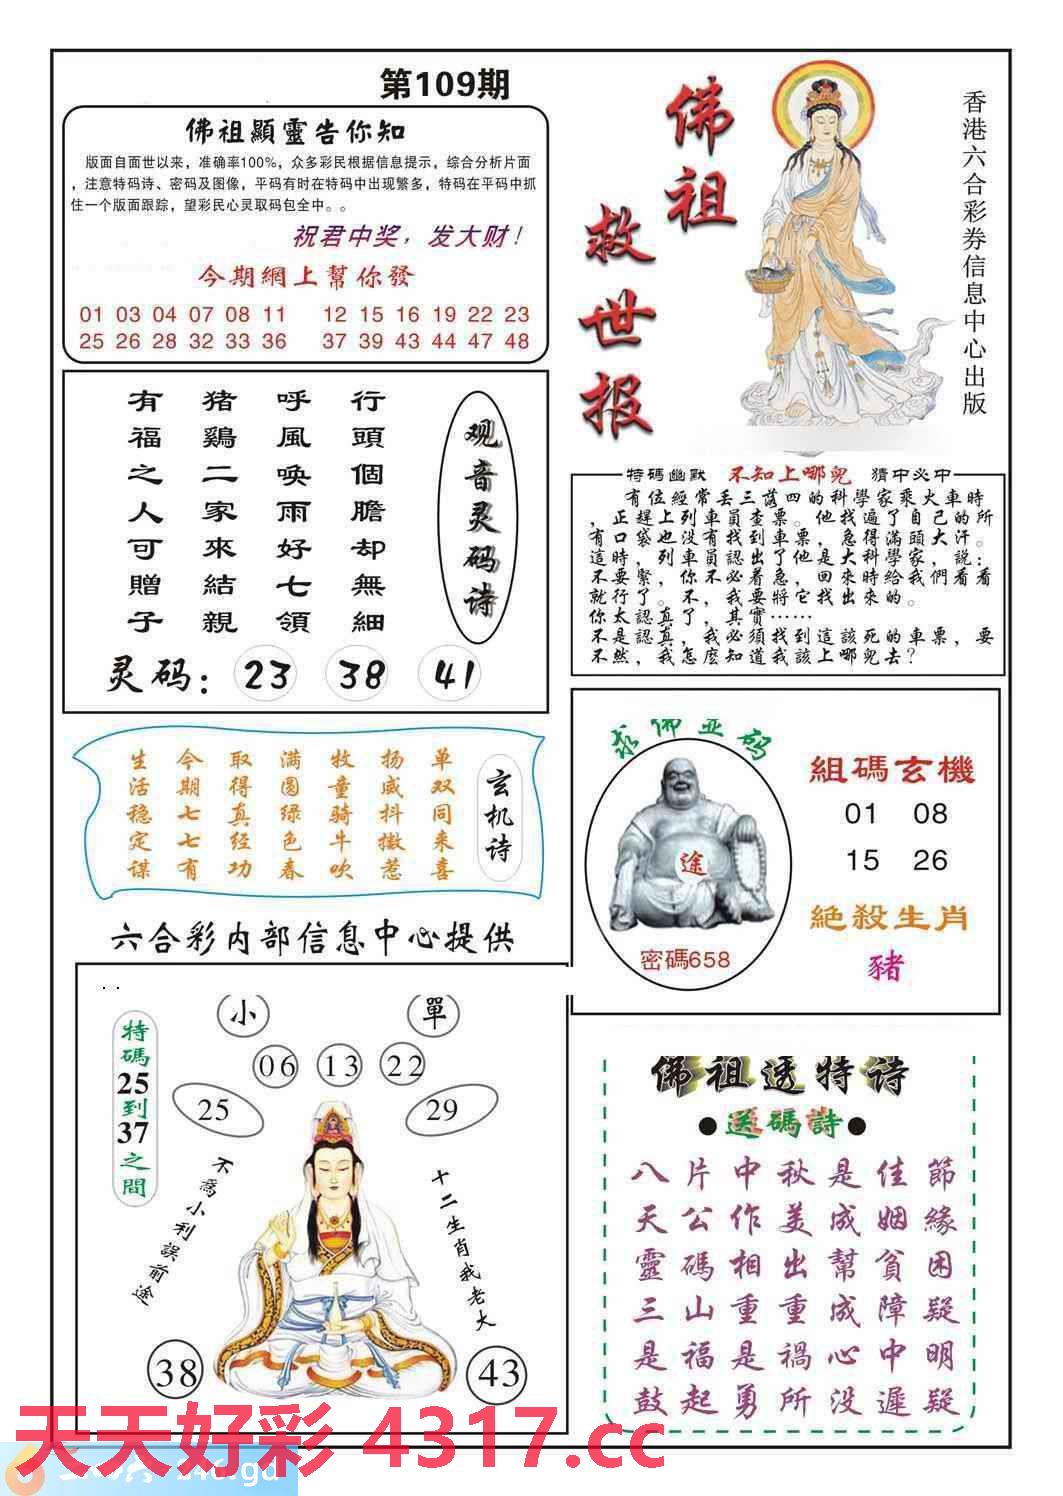 第109期
佛祖顯靈告你知
版面自面世以来，准确率100%，众多彩民根据信息提示，综合分析片面
，注意特码诗、密码及图像，平码有时在特码中出现繁多，特码在平码中抓
住一个版面跟踪，望彩民心灵取码包全中。。
祝君中奖，发大财！
今期網上幫你發
01 03 04 07 08 11 12 15 16 19 22 23
25 26 28 32 33 36 37 39 43 44 47 48
佛祖
救世报
香港六合彩券信息中心出版
观音灵码诗
行頭個膽却無細
呼風喚雨好七領
猪鷄二家來結親
有福之人可贈子
灵码：23 38 41
特碼幽默 不知上哪兒 猜中必中
有位經常丢三落四的科學家乘火車時
，正趕上列車員查票。他找遍了自己的所
有口袋也没有找到車票，急得滿頭大汗。
這時，列車員認出了他是大科學家，説：
不要緊，你不必着急，回來時給我們看看
就行了。不，我要將它找出來的。
你太認真了，其實……
不是認真，我必須找到這該死的車票，要
不然，我怎麽知道我該上哪兒去？
玄机诗
单双同来喜
扬威抖擞惹
牧童骑牛吹
满圆绿色春
取得真经功
今期七七有
生活稳定谋
求佛並码
途
密碼658
組碼玄機
01 08
15 26
絶殺生肖
豬
六合彩内部信息中心提供
小 單
06 13 22
25 29
特碼25到37之間
不爲小利誤前途
十二生肖我老大
38 43
佛祖透特诗
●送碼詩●
八片中秋是佳節
天公作美成姻緣
靈碼相出幫貧困
三山重重成障疑
是福是禍心中明
鼓起勇所没遲疑
天天好彩 4317.cc
246.gd